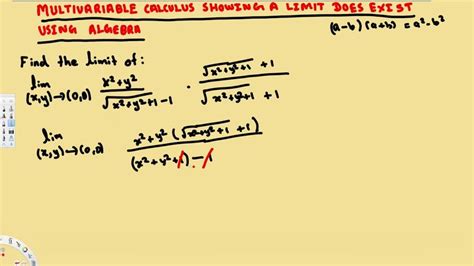 MULTIVARIABLE CALCULUS SHOWING A LIMIT DOES EXIST
USING ALGEBRA
(a-b) (a+b) = a²-b²
Find the limit of:
lim (x,y)→(0,0) x²+y² / √x²+y²+1 -1 · √x²+y²+1 +1 / √x²+y²+1 +1
lim (x,y)→(0,0) x²+y² (√x²+y²+1 +1) / (x²+y²+1) - 1